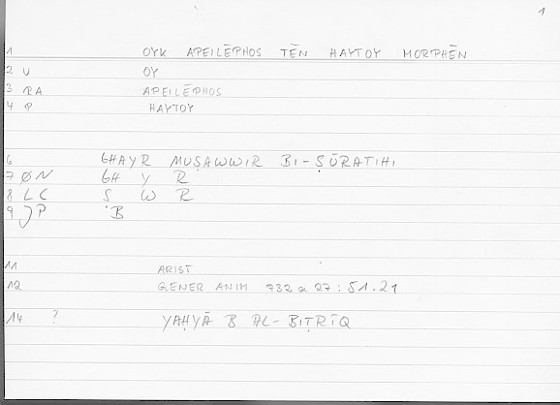 1
1 OYK APEILĒPHOS TĒN HAYTOY MORPHĒN
2 V OY
3 RA APEILĒPHOS
4 P HAYTOY
6 GHAYR MUṢAWWIR BI-ṢŪRATIHI
7 ØN GH Y R
8 LC Ṣ W R
9 JP B
11 ARIST
12 GENER ANIM 732 a 27 : 51.21
14 ? YAḤYĀ B AL-BIṬRĪQ